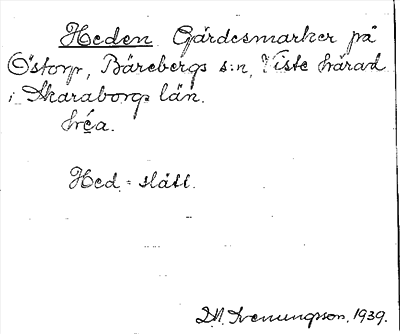 Heden Gärdesmarker på
Östorp, Bärebergs s:n, Viste härad
i Skaraborgs län.
Hed = slätt.
1939.